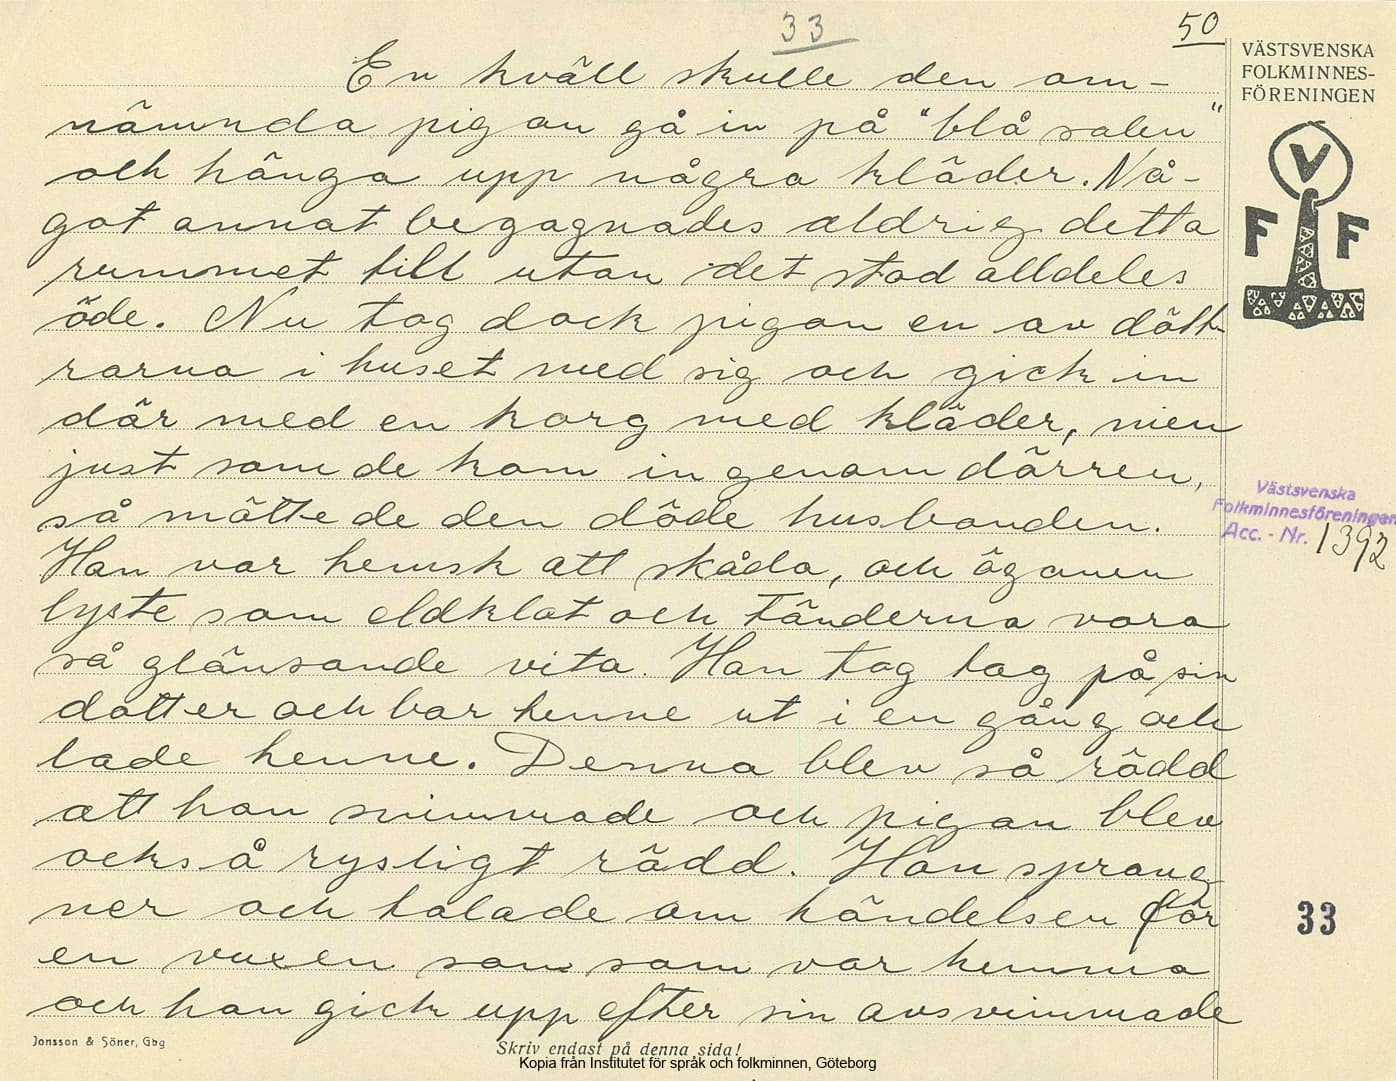 33
50
VÄSTSVENSKA
FOLKMINNES-
FÖRENINGEN
V
F F
En kväll skulle den om-
nämnda pigan gå in på "blå salen"
och hänga upp några kläder. Nå-
got annat begagnades aldrig detta
rummet till utan det stod alldeles
öde. Nu tog dock pigan en av dött-
rarna i huset med sig och gick in
där med en korg med kläder, men
just som de kom in genom dörren,
så mötte de den döde husbonden.
Han var hemsk att skåda, och ögonen
lyste som eldklot och tänderna voro
så glänsande vita. Han tog tag på sin
dotter och bar henne ut i en gång och
lade henne. Denna blev så rädd
att hon svimmade och pigan blev
också rysligt rädd. Hon sprang
ner och talade om händelsen för
en vuxen son som var hemma
och han gick upp efter sin avsvimmade
Västsvenska
Folkminnesföreningen
Acc. - Nr. 1392
33
Jonsson & Söner, Gbg
Skriv endast på denna sida!
Kopia från Institutet för språk och folkminnen, Göteborg